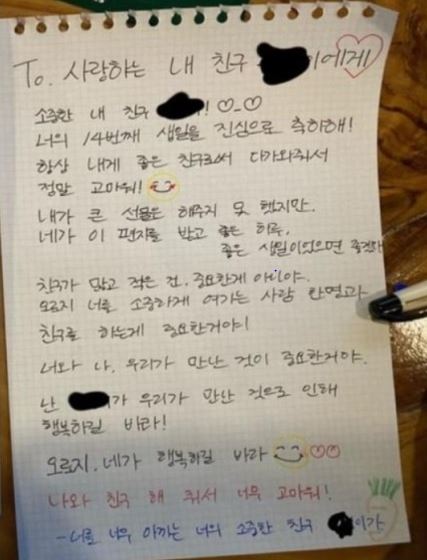 To. 사랑하는 내 친구 이에게
소중한 내 친구 ! ♡_♡
너의 14번째 생일을 진심으로 축하해!
항상 내게 좋은 친구로써 다가와줘서
정말 고마워!
내가 큰 선물은 해주지 못 했지만,
네가 이 편지를 받고 좋은 하루,
좋은 생일이었으면 좋겠어
친구가 많고 적은 건, 중요한게 아니야.
오로지 너를 소중하게 여기는 사람 한명과
친구를 하는게 중요한거야!
너와 나, 우리가 만난 것이 중요한거야.
난 가 우리가 만난 것으로 인해
행복하길 바라!
오로지, 네가 행복하길 바라 ♡♡
나와 친구 해 줘서 너무 고마워!
-너를 너무 아끼는 너의 소중한 친구 이가